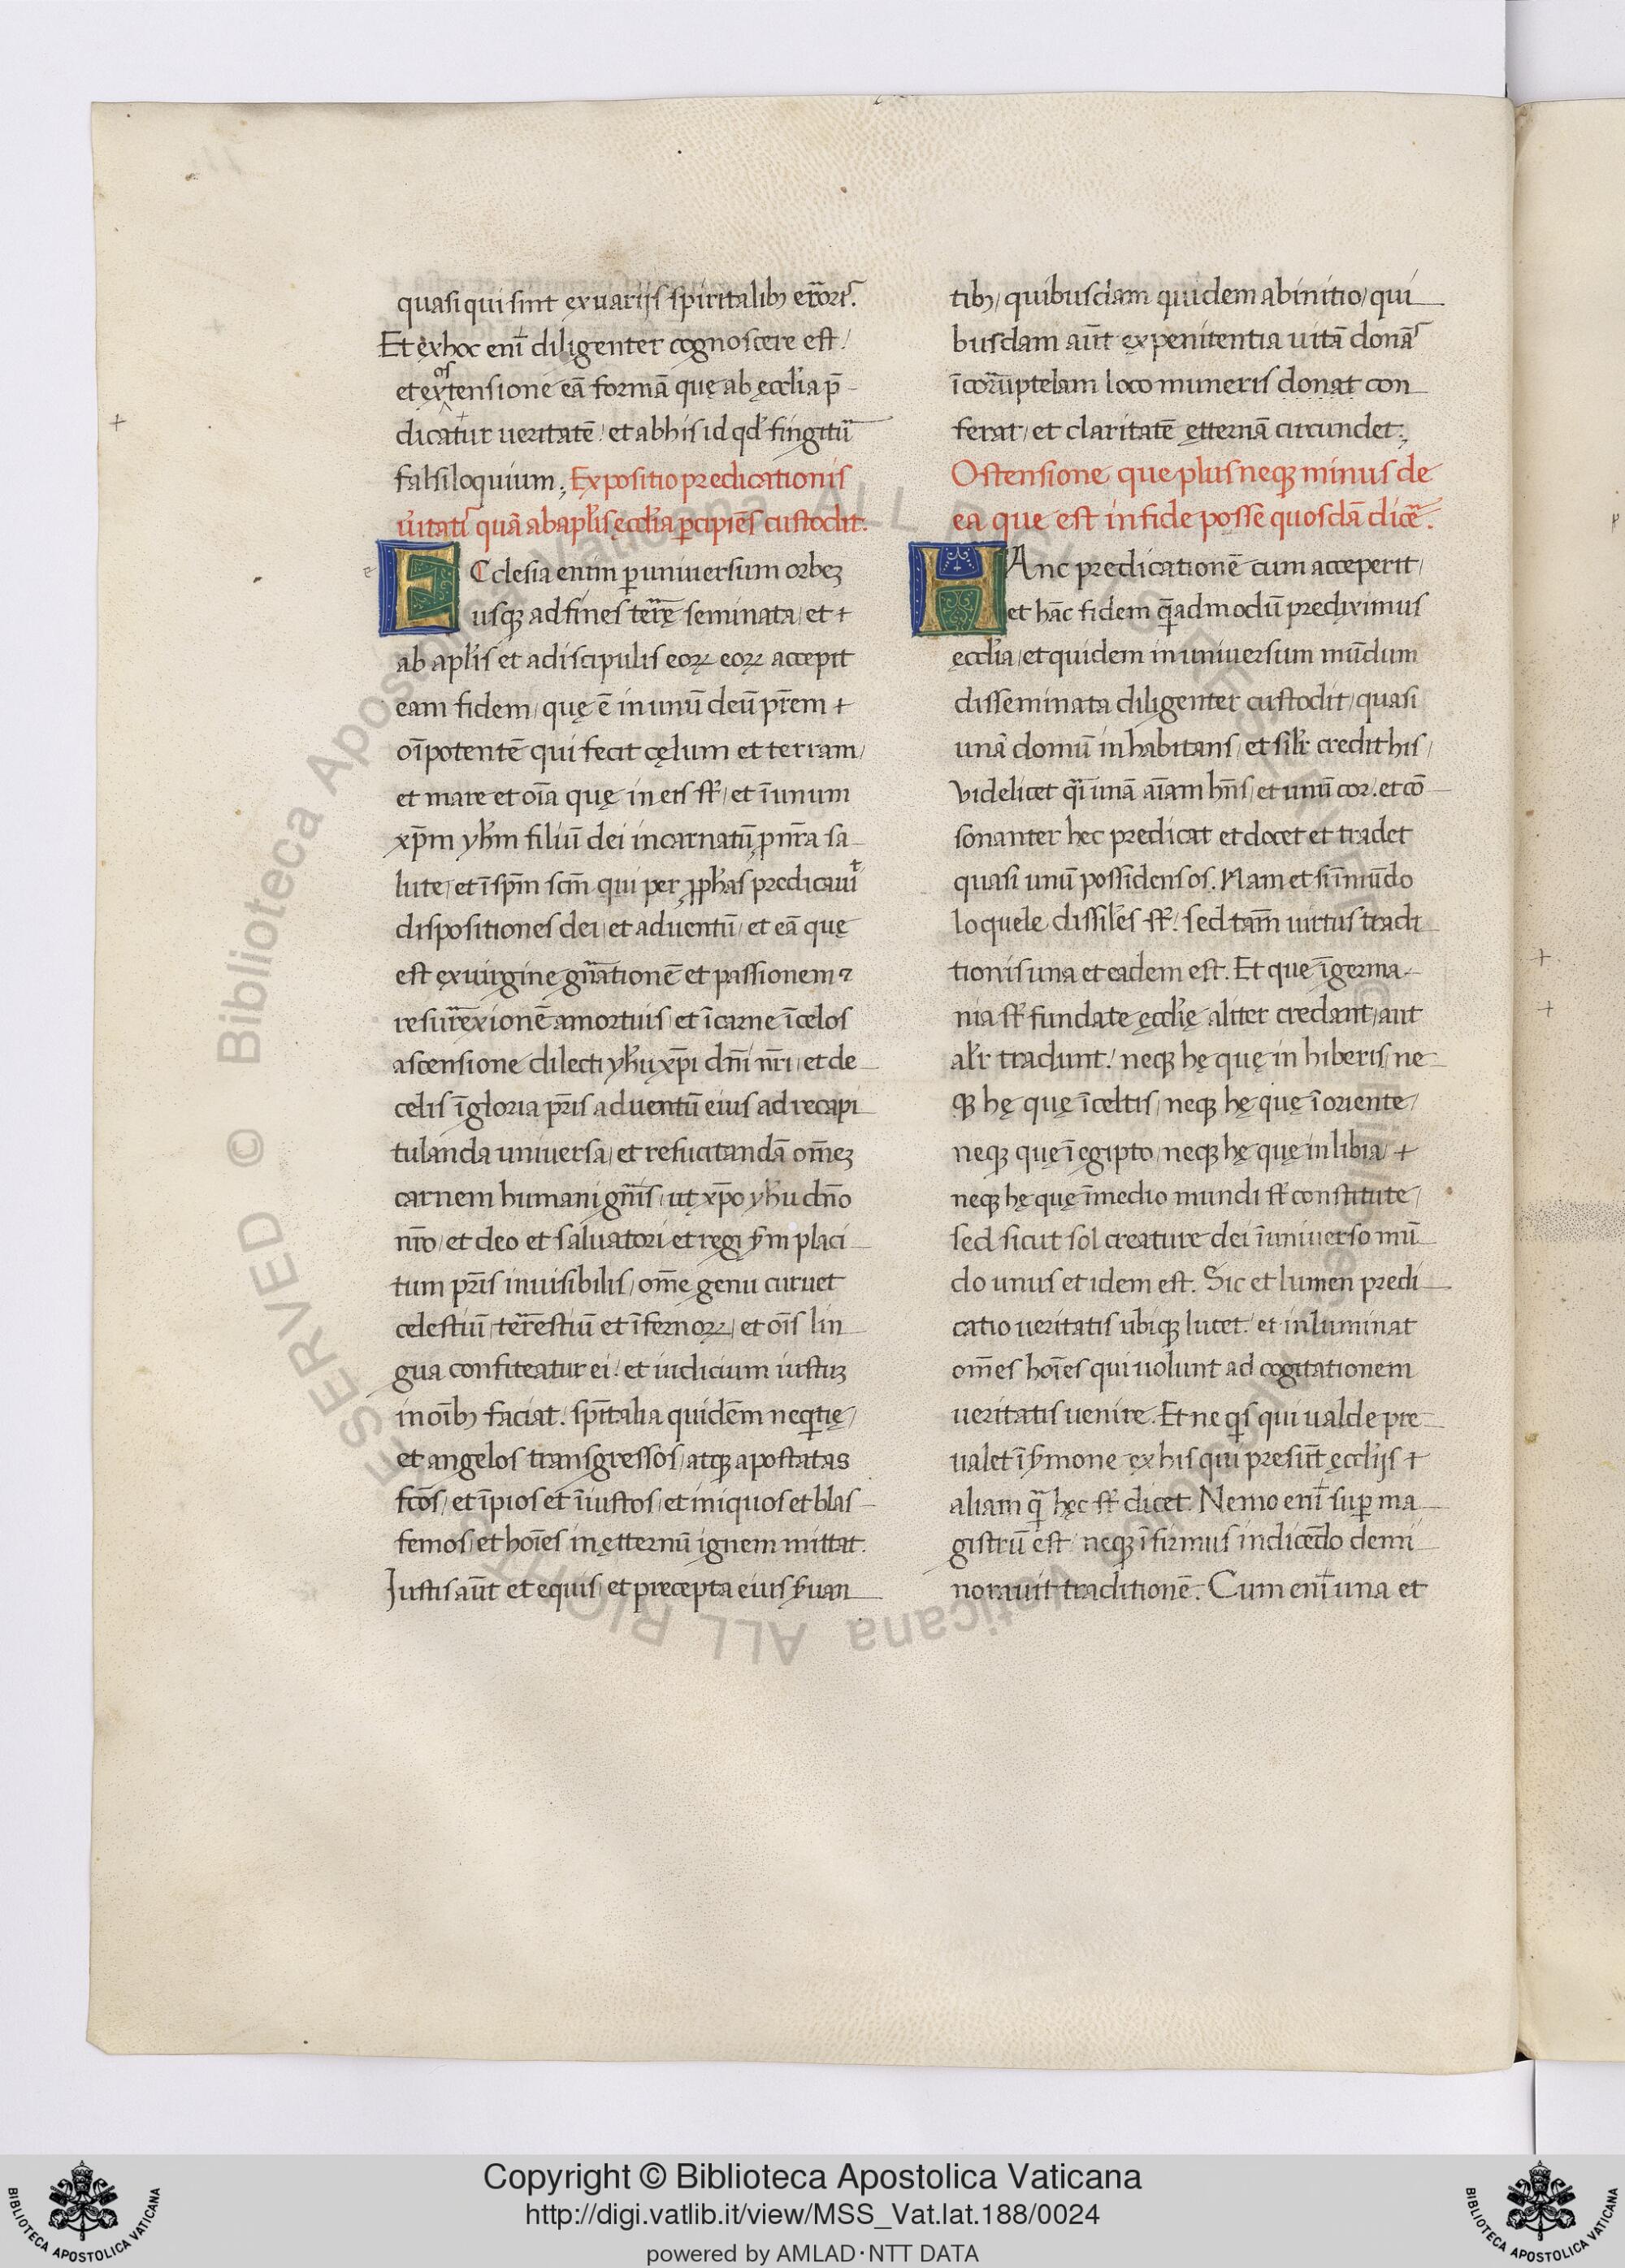 quasi qui sint ex uarijs spiritalibꝫ er̃oris̉.
Et ex hoc eni̅ diligenter cognoscere est /
et ex os tensione ea̅ forma̅ quę ab ęccl̓ia p̅
dicatur ueritate̅ / et ab his id qd̓ fingitu̅
falsiloquium ; Expositio predicationis
u̓itati̓ qua̅ ab apl̓is ęccl̓ia ꝑcipie̅s custodit .
E Cclesia enim ꝑ uniuersum orbeꝫ
usqꝫ ad fines ter̃ę seminata / et +
ab apl̓is et a discipulis eoꝝ eoꝝ accepit
eam fidem / quę e̅ in unu̅ deu̅ pr̅em +
oi̅potente̅ qui fecit cęlum et terram /
et mare et oi̅a quę in eis st̓ / et i̅ unum
xp̅m yh̅m filiu̅ dei incarnatu̅ ꝓ nr̅a sa
lute / et i̅ sp̅m sc̅m qui per ꝓph̓as predicaui̅t
dispositiones dei / et aduentu̅ / et ea̅ quę
est ex uirgine gn̅atione̅ et passionem ⁊
resur̃exione̅ a mortuis / et i̅ carne i̅ celos
ascensione dilecti yh̅u xp̅i dn̅i nr̅i / et de
celis i̅ gloria pr̅is aduentu̅ eius ad recapi
tulanda uniuersa / et resucitanda̅ om̅eꝫ
carnem humani gn̅is / ut xp̅o yh̅u dn̅o
nr̅o / et deo et saluatori et regi s̓m placi
tum pr̅is inuisibilis / om̅e genu curuet
celestiu̅ / ter̃estiu̅ et i̅fernoꝝ / et oi̅s lin
gua confiteatur ei / et iudicium iustuꝫ
in oi̅bꝫ faciat . sp̅italia quidem neqtię /
et angelos transgressos / atqꝫ apostatas
fc̅os / et i̅pios et i̅iustos / et iniquos et blas
femos / et hoi̅es in ętternu̅ ignem mittat .
Iustis au̅t et equis / et precepta eius s̓uan
tibꝫ / quibusdam quidem ab initio / qui
busdam au̅t ex penitentia uita̅ dona̅s
i̅cor̃uptelam loco muneris donat con
ferat / et claritate̅ ętterna̅ circundet ;
Ostensione que plus neqꝫ minus de
ea que est in fide posse quosda̅ dice̅ .
H Anc predicatione̅ cum acceperit /
et ha̅c fidem qͣ̅admodu̅ prediximus
ęccl̓ia / et quidem in uniuersum mu̅dum
disseminata diligenter custodit / quasi
una̅ domu̅ inhabitans / et sil̓r credit his /
videlicet qͣi̅ una̅ ai̅am hn̅s / et unu̅ cor . et co̅
sonanter hec predicat et docet et tradet
quasi unu̅ possidens os . Nam et si i̅ mu̅do
loquele dissil̓es st̓ / sed tam̅ uirtus tradi
tionis una et eadem est . Et que i̅ germa
nia st̓ fundate ęccl̓ię aliter credant / aut
al̓r tradunt / neqꝫ hę quę in hiberis / ne
qꝫ hę quę i̅ celtis / neqꝫ hę quę i̅ oriente /
neqꝫ quę i̅ egipto / neqꝫ hę quę in libia / +
neqꝫ hę quę i̅ medio mundi st̓ constitute /
sed sicut sol creature dei i̅ uniuerso mu̅
do unus et idem est . Sic et lumen predi
catio ueritatis ubiqꝫ lucet / et inluminat
om̅es hoi̅es qui uolunt ad cogitationem
ueritatis uenire . Et ne qͥs qui ualde pre
ualet i̅ s̓mone ex his qui presu̅t ęccl̓ijs +
aliam qͣ̅ hęc st̓ dicet . Nemo eni̅ suꝑ ma
gistru̅ est / neqꝫ i̅firmus in dice̅do demi
norauit traditione̅ . Cum eni̅ una et
Copyright © Biblioteca Apostolica Vaticana
http://digi.vatlib.it/view/MSS_Vat.lat.188/0024
powered by AMLAD·NTT DATA
BIBLIOTECA APOSTOLICA VATICANA
BIBLIOTECA APOSTOLICA VATICANA
© Biblioteca Apostolica Vaticana ALL RIGHTS RESERVED